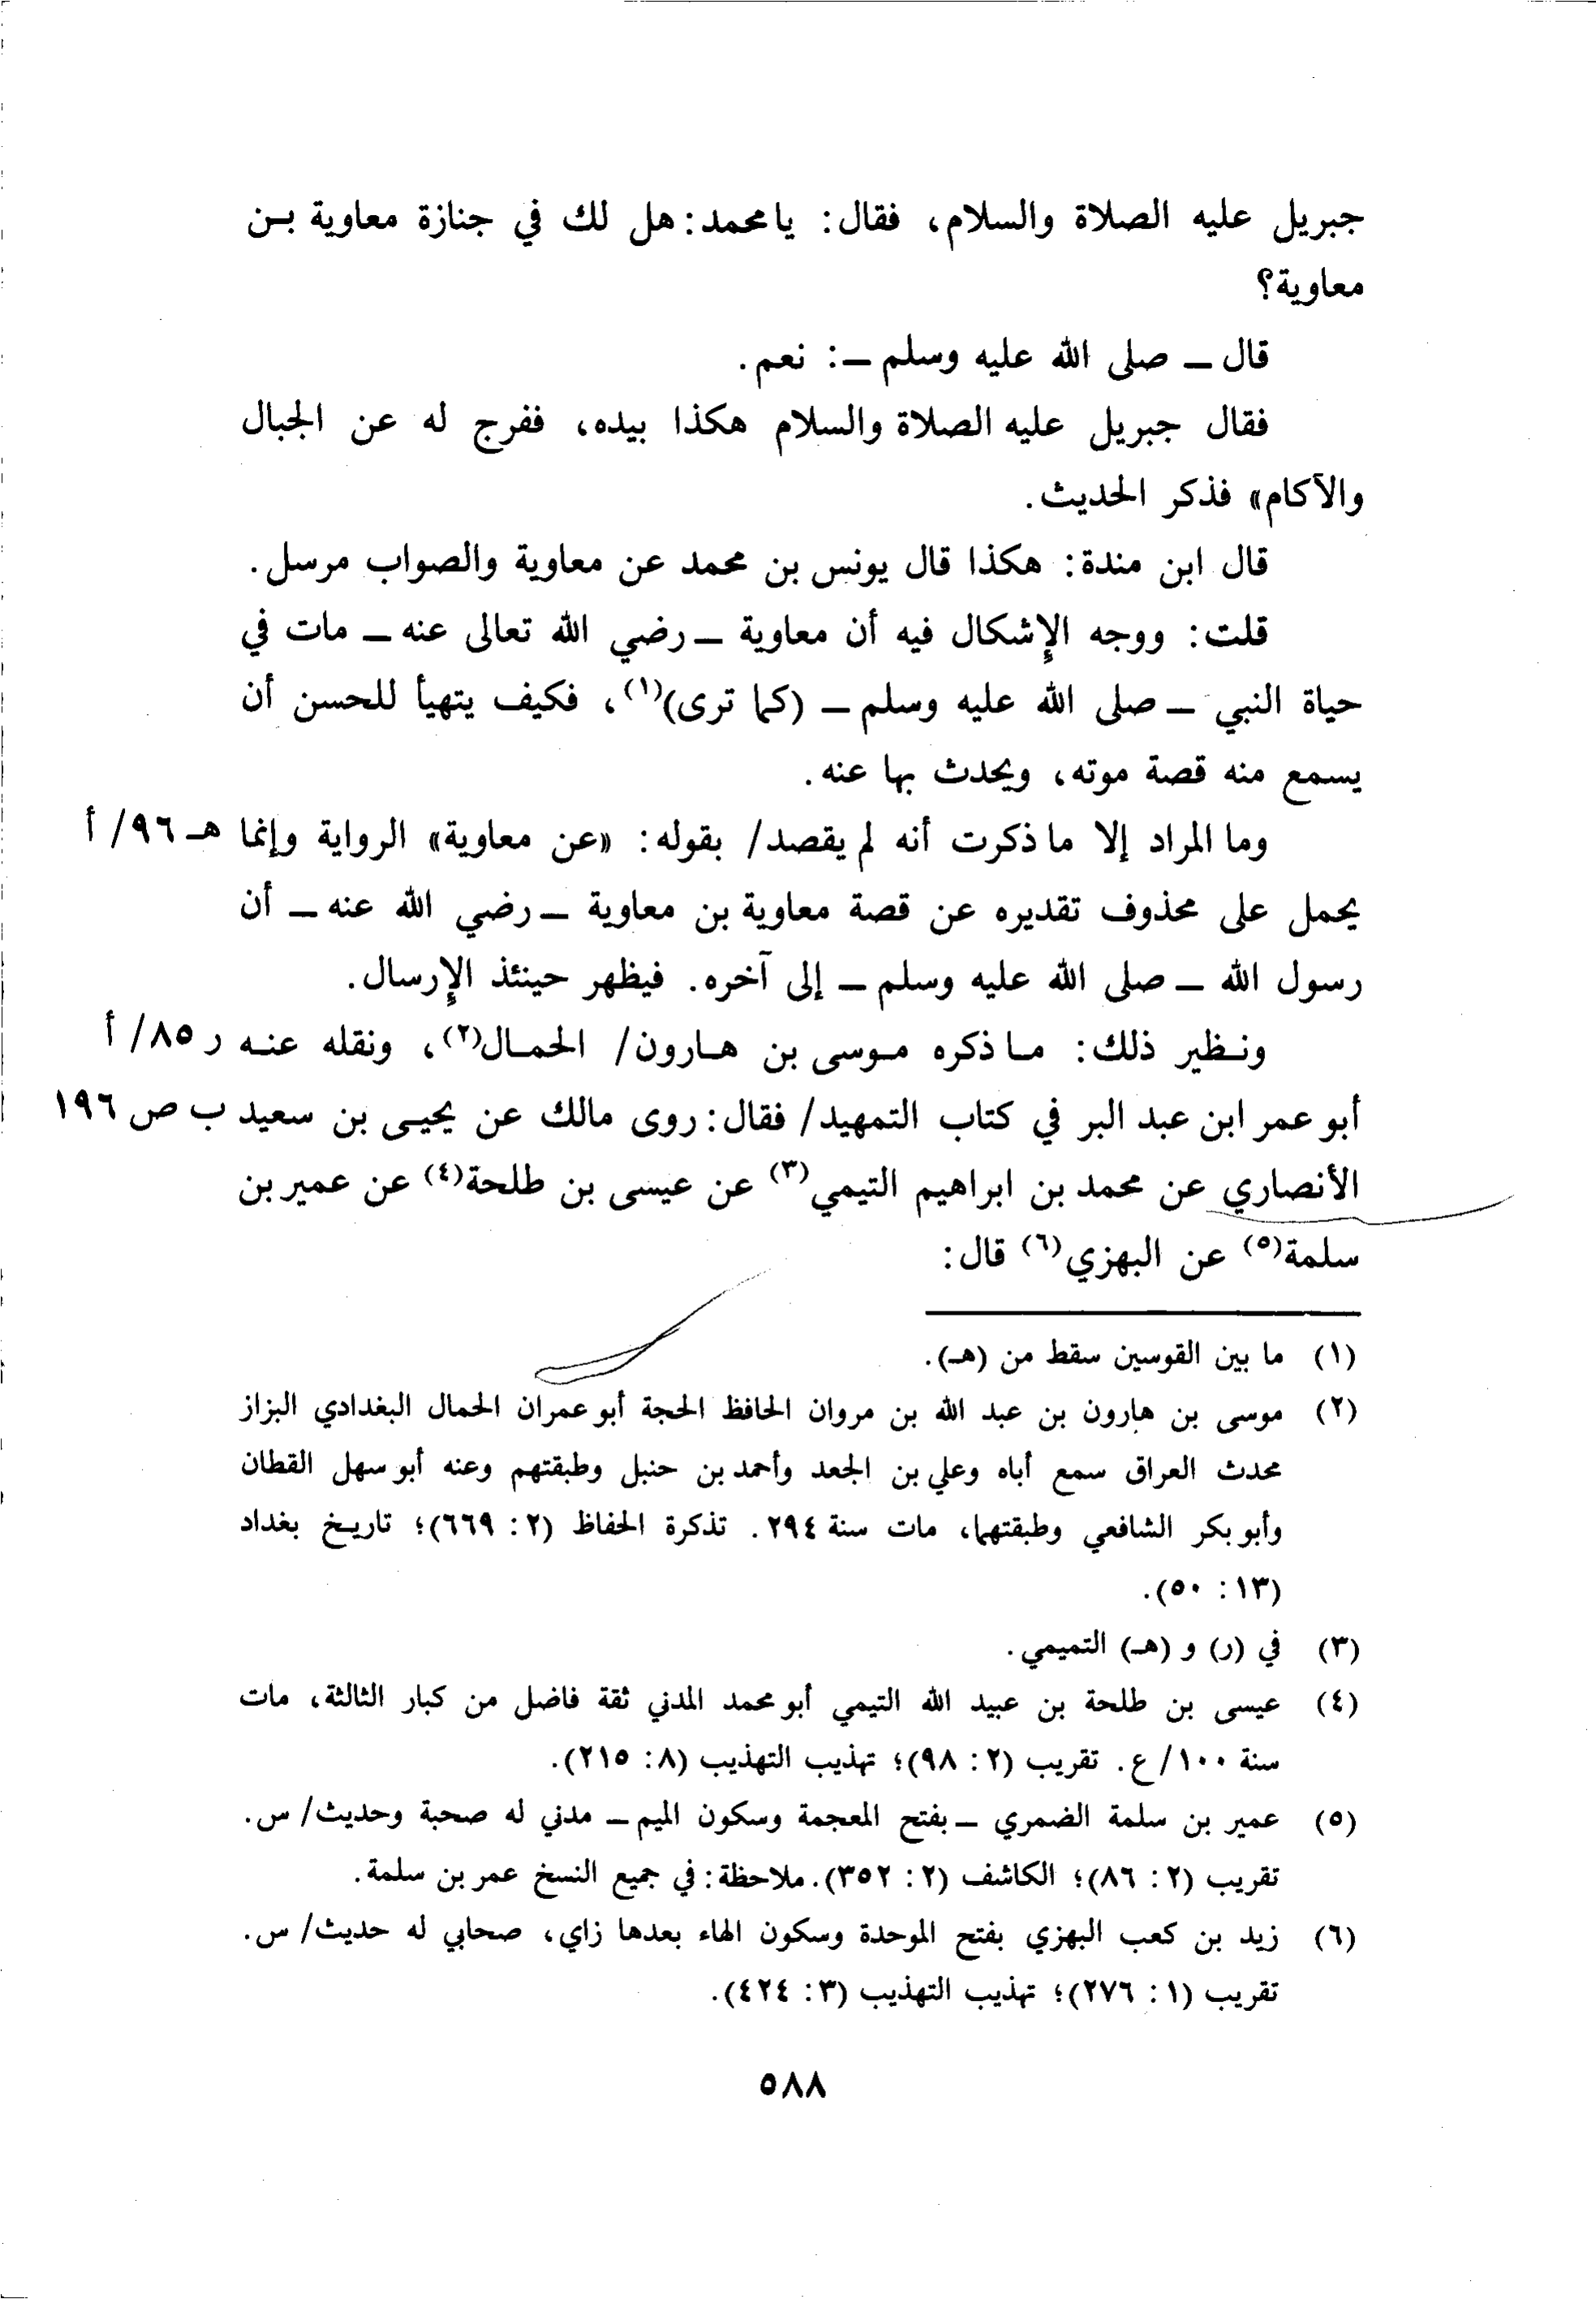 جبريل عليه الصلاة والسلام، فقال: يا محمد: هل لك في جنازة معاوية بن
معاوية؟
قال ــ صلى الله عليه وسلم ــ: نعم.
فقال جبريل عليه الصلاة والسلام هكذا بيده، ففرج له عن الجبال
والآكام» فذكر الحديث.
قال ابن مندة: هكذا قال يونس بن محمد عن معاوية والصواب مرسل.
قلت: ووجه الإشكال فيه أن معاوية ــ رضي الله تعالى عنه ــ مات في
حياة النبي ــ صلى الله عليه وسلم ــ (كما ترى)(١)، فكيف يتهيأ للحسن أن
يسمع منه قصة موته، ويحدث بها عنه.
وما المراد إلا ما ذكرت أنه لم يقصد/ بقوله: «عن معاوية» الرواية وإنما هـ ٩٦/ أ
يحمل على محذوف تقديره عن قصة معاوية بن معاوية ــ رضي الله عنه ــ أن
رسول الله ــ صلى الله عليه وسلم ــ إلى آخره. فيظهر حينئذ الإرسال.
ونظير ذلك: ما ذكره موسى بن هارون/ الحمال(٢)، ونقله عنه ر ٨٥/ أ
أبو عمر ابن عبد البر في كتاب التمهيد/ فقال: روى مالك عن يحيى بن سعيد ب ص ١٩٦
الأنصاري عن محمد بن ابراهيم التيمي(٣) عن عيسى بن طلحة(٤) عن عمير بن
سلمة(٥) عن البهزي(٦) قال:
(١) ما بين القوسين سقط من (هـ).
(٢) موسى بن هارون بن عبد الله بن مروان الحافظ الحجة أبو عمران الحمال البغدادي البزاز
محدث العراق سمع أباه وعلي بن الجعد وأحمد بن حنبل وطبقتهم وعنه أبو سهل القطان
وأبو بكر الشافعي وطبقتهما، مات سنة ٢٩٤. تذكرة الحفاظ (٢: ٦٦٩)؛ تاريخ بغداد
(١٣: ٥٠).
(٣) في (ر) و (هـ) التميمي.
(٤) عيسى بن طلحة بن عبيد الله التيمي أبو محمد المدني ثقة فاضل من كبار الثالثة، مات
سنة ١٠٠/ ع. تقريب (٢: ٩٨)؛ تهذيب التهذيب (٨: ٢١٥).
(٥) عمير بن سلمة الضمري ــ بفتح المعجمة وسكون الميم ــ مدني له صحبة وحديث/ س.
تقريب (٢: ٨٦)؛ الكاشف (٢: ٣٥٢). ملاحظة: في جميع النسخ عمر بن سلمة.
(٦) زيد بن كعب البهزي بفتح الموحدة وسكون الهاء بعدها زاي، صحابي له حديث/ س.
تقريب (١: ٢٧٦)؛ تهذيب التهذيب (٣: ٤٢٤).
٥٨٨